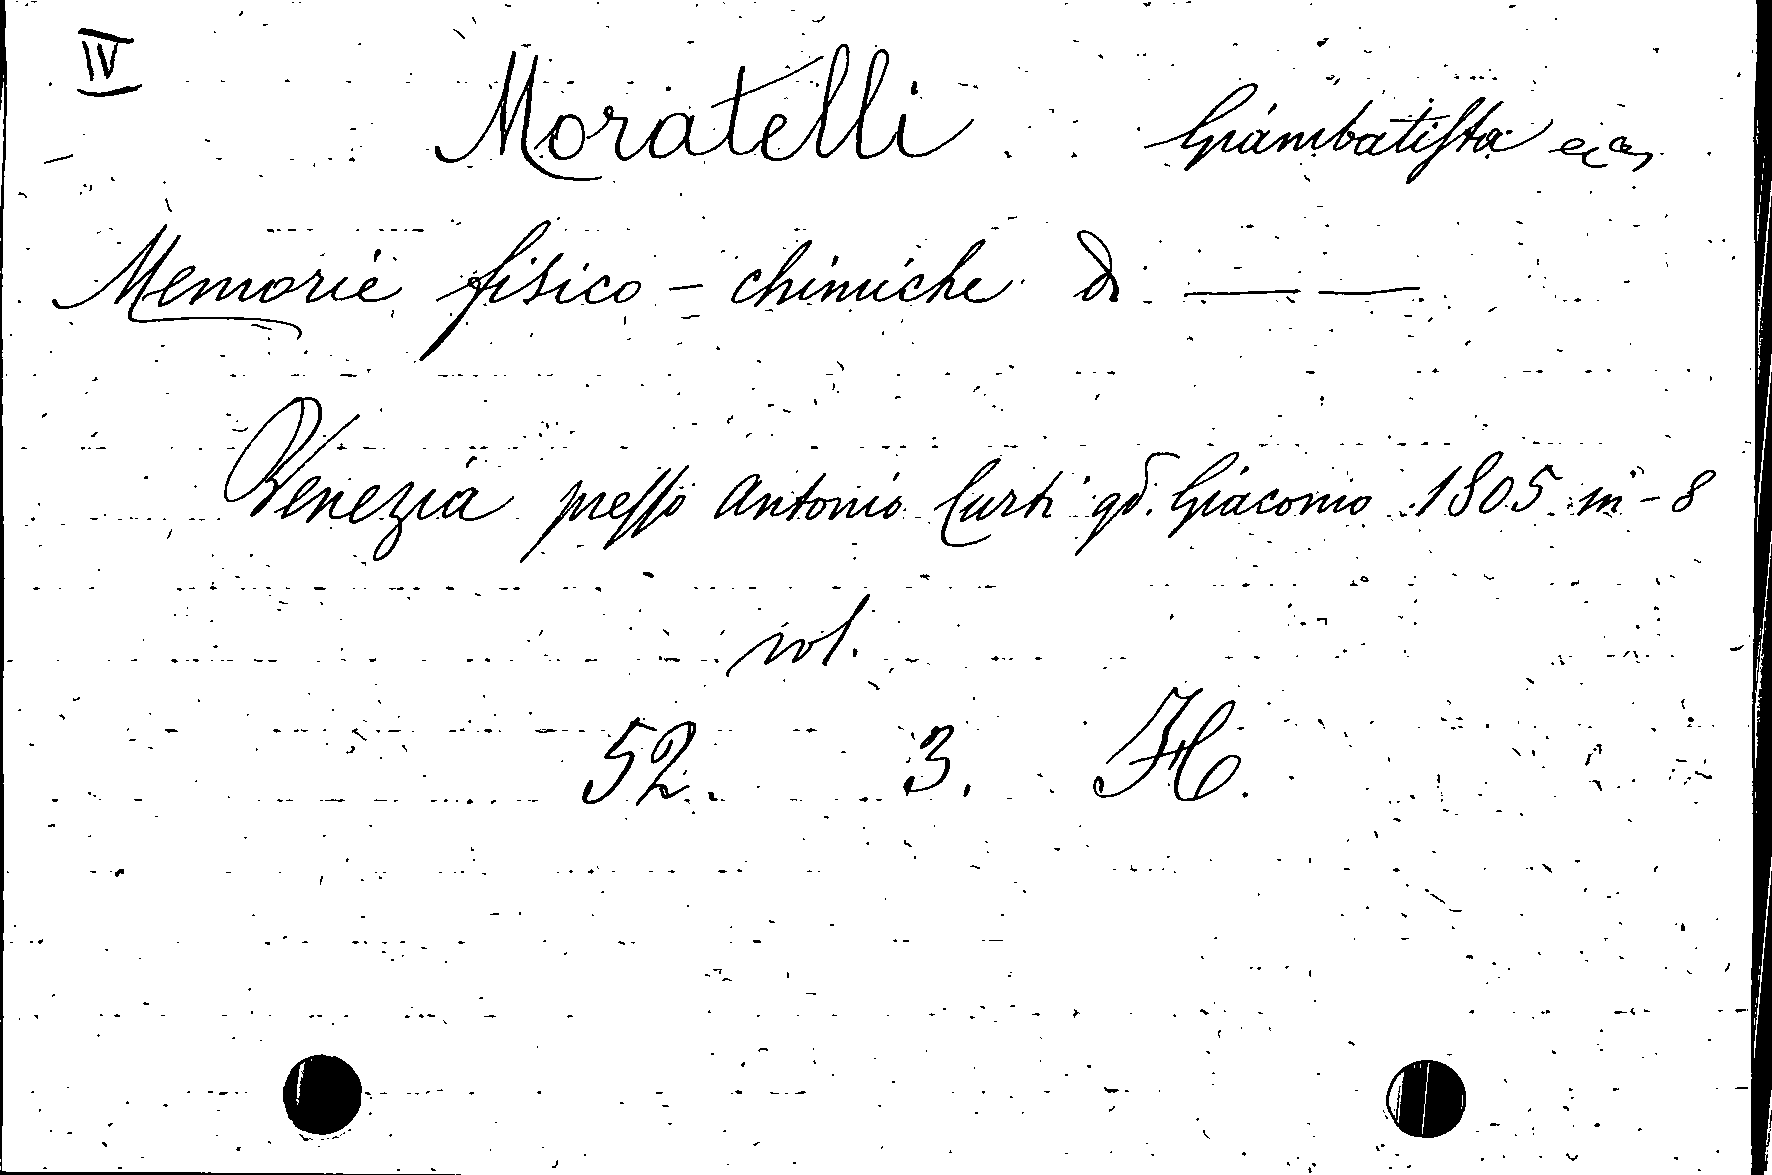 IV
Moratelli Giambatista
Memorie fisico-chimiche di — —
Venezia presso Antonio Curti qd. Giacomo 1805 in-8
vol.
52. 3. H.